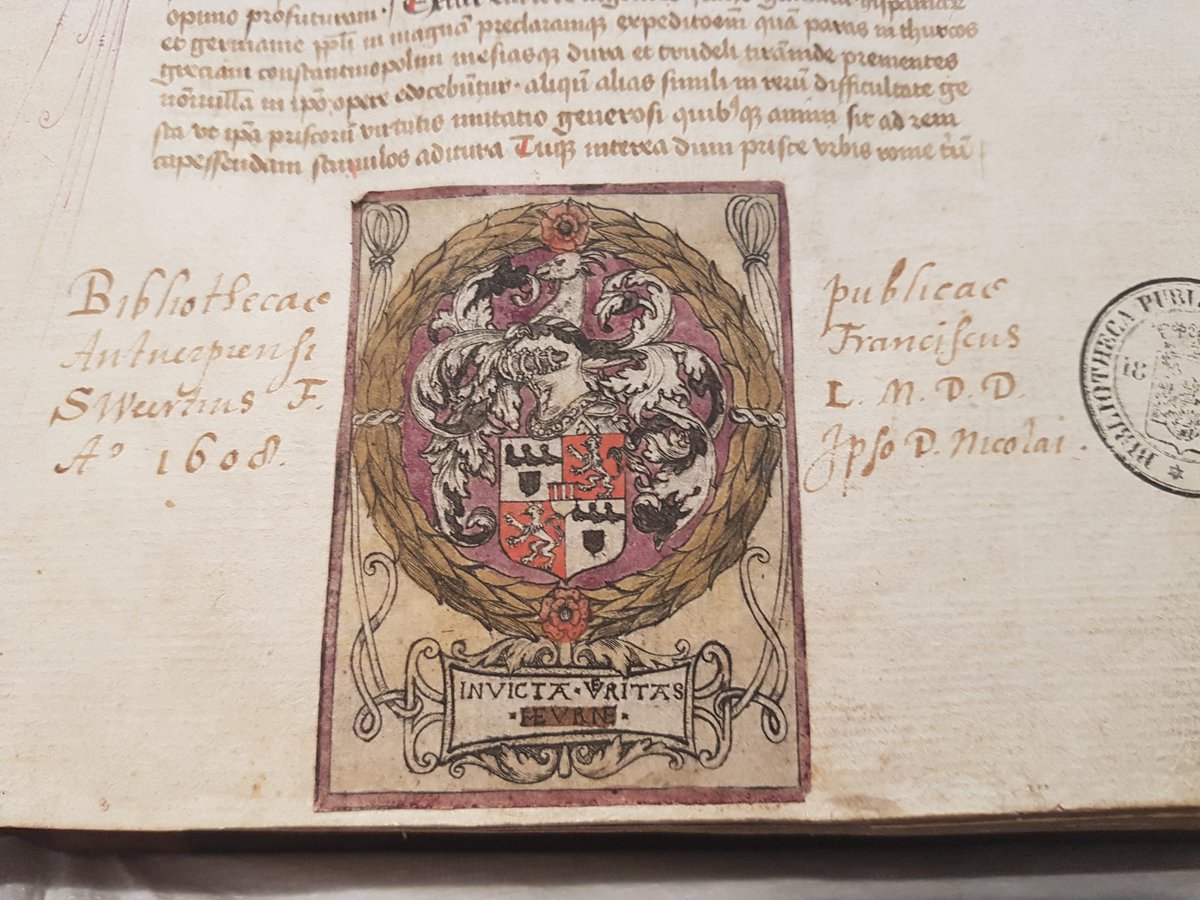 opimo profuturam. Exin
et germanie ppli in magnā preclaramque expeditoem qua paras in thurcos
greciam constantinopolim mesiasque dura et crudeli tirānide prementes
nōnulla in ipō opere edocebūtur. aliqūn alias simili in rerū difficultate ge
sta ut ipa priscorū virtutis imitatio generosi quibusque animi sit ad rem
capessendam stimulos aditura Tuque interea dum prisce vrbis rome
Bibliothecae publicae
Antuerpiensi Franciscus
SWeertius F. L. M. D. D.
Aº 1608. Ipso D. Nicolai.
INVICTA · VERITAS
BIBLIOTHECA PUBLI
18